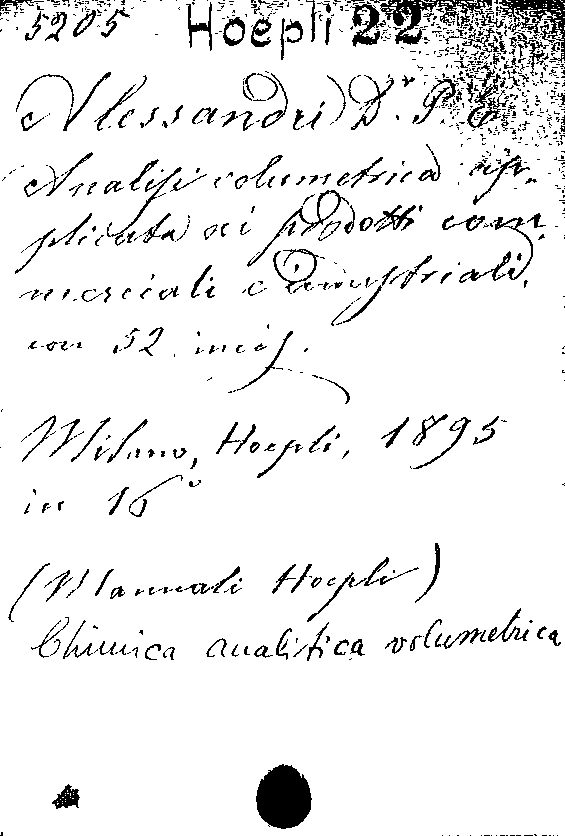 5205 Hoepli 22
Alessandri Dr. P. E.
Analisi volumetrica ap-
plicata ai prodotti com-
merciali e industriali,
con 52 incis.
Milano, Hoepli, 1895
in 16°
(Manuali Hoepli)
Chimica analitica volumetrica